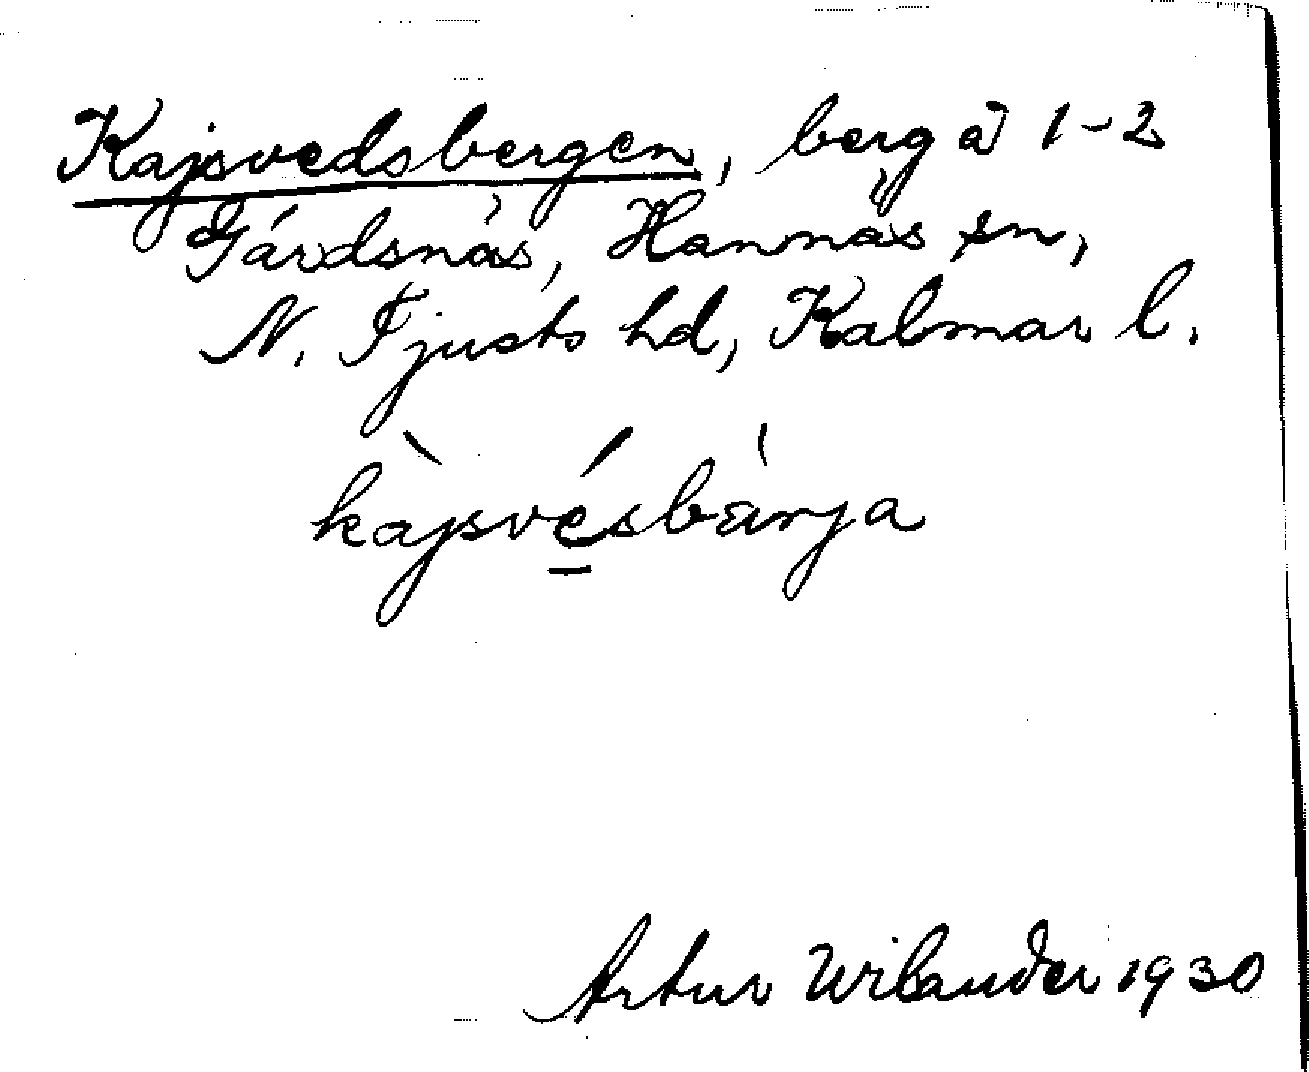 Kajsvedsbergen, berg å 1-2
Gårdsnäs, Hannäs sn,
N. Tjusts hd, Kalmar l.
kàjsvésbärja
Artur Wilander 1930